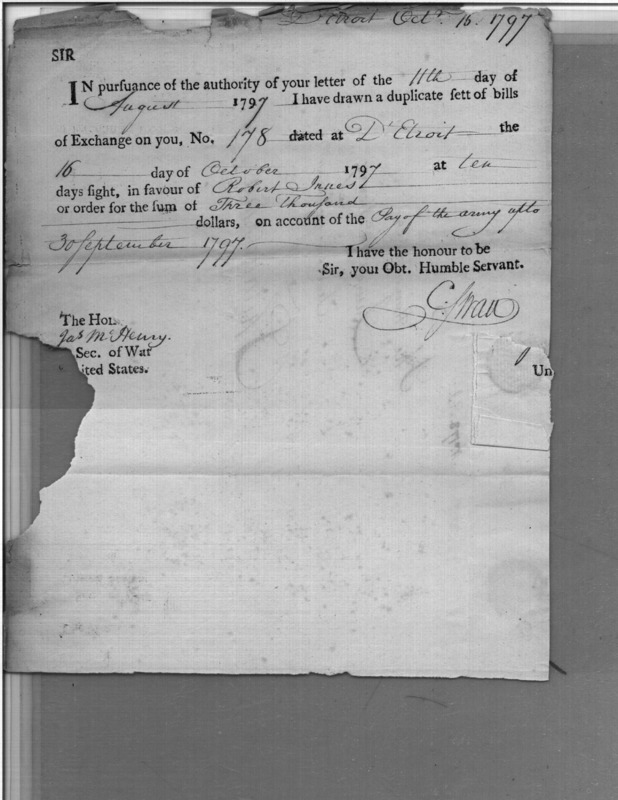 Detroit Octr. 16. 1797
SIR
IN purſuance of the authority of your letter of the 11th day of
August 1797 I have drawn a duplicate ſett of bills
of Exchange on you, No. 178 dated at D'Etroit the
16 day of October 1797 at ten
days ſight, in favour of Robert Innes
or order for the ſum of Three thousand
dollars, on account of the Pay of the army upto
30 September 1797.
I have the honour to be
Sir, your Obt. Humble Servant.
C. Swan
The Hon.
Jas McHenry.
Sec. of War
ited States.
Un